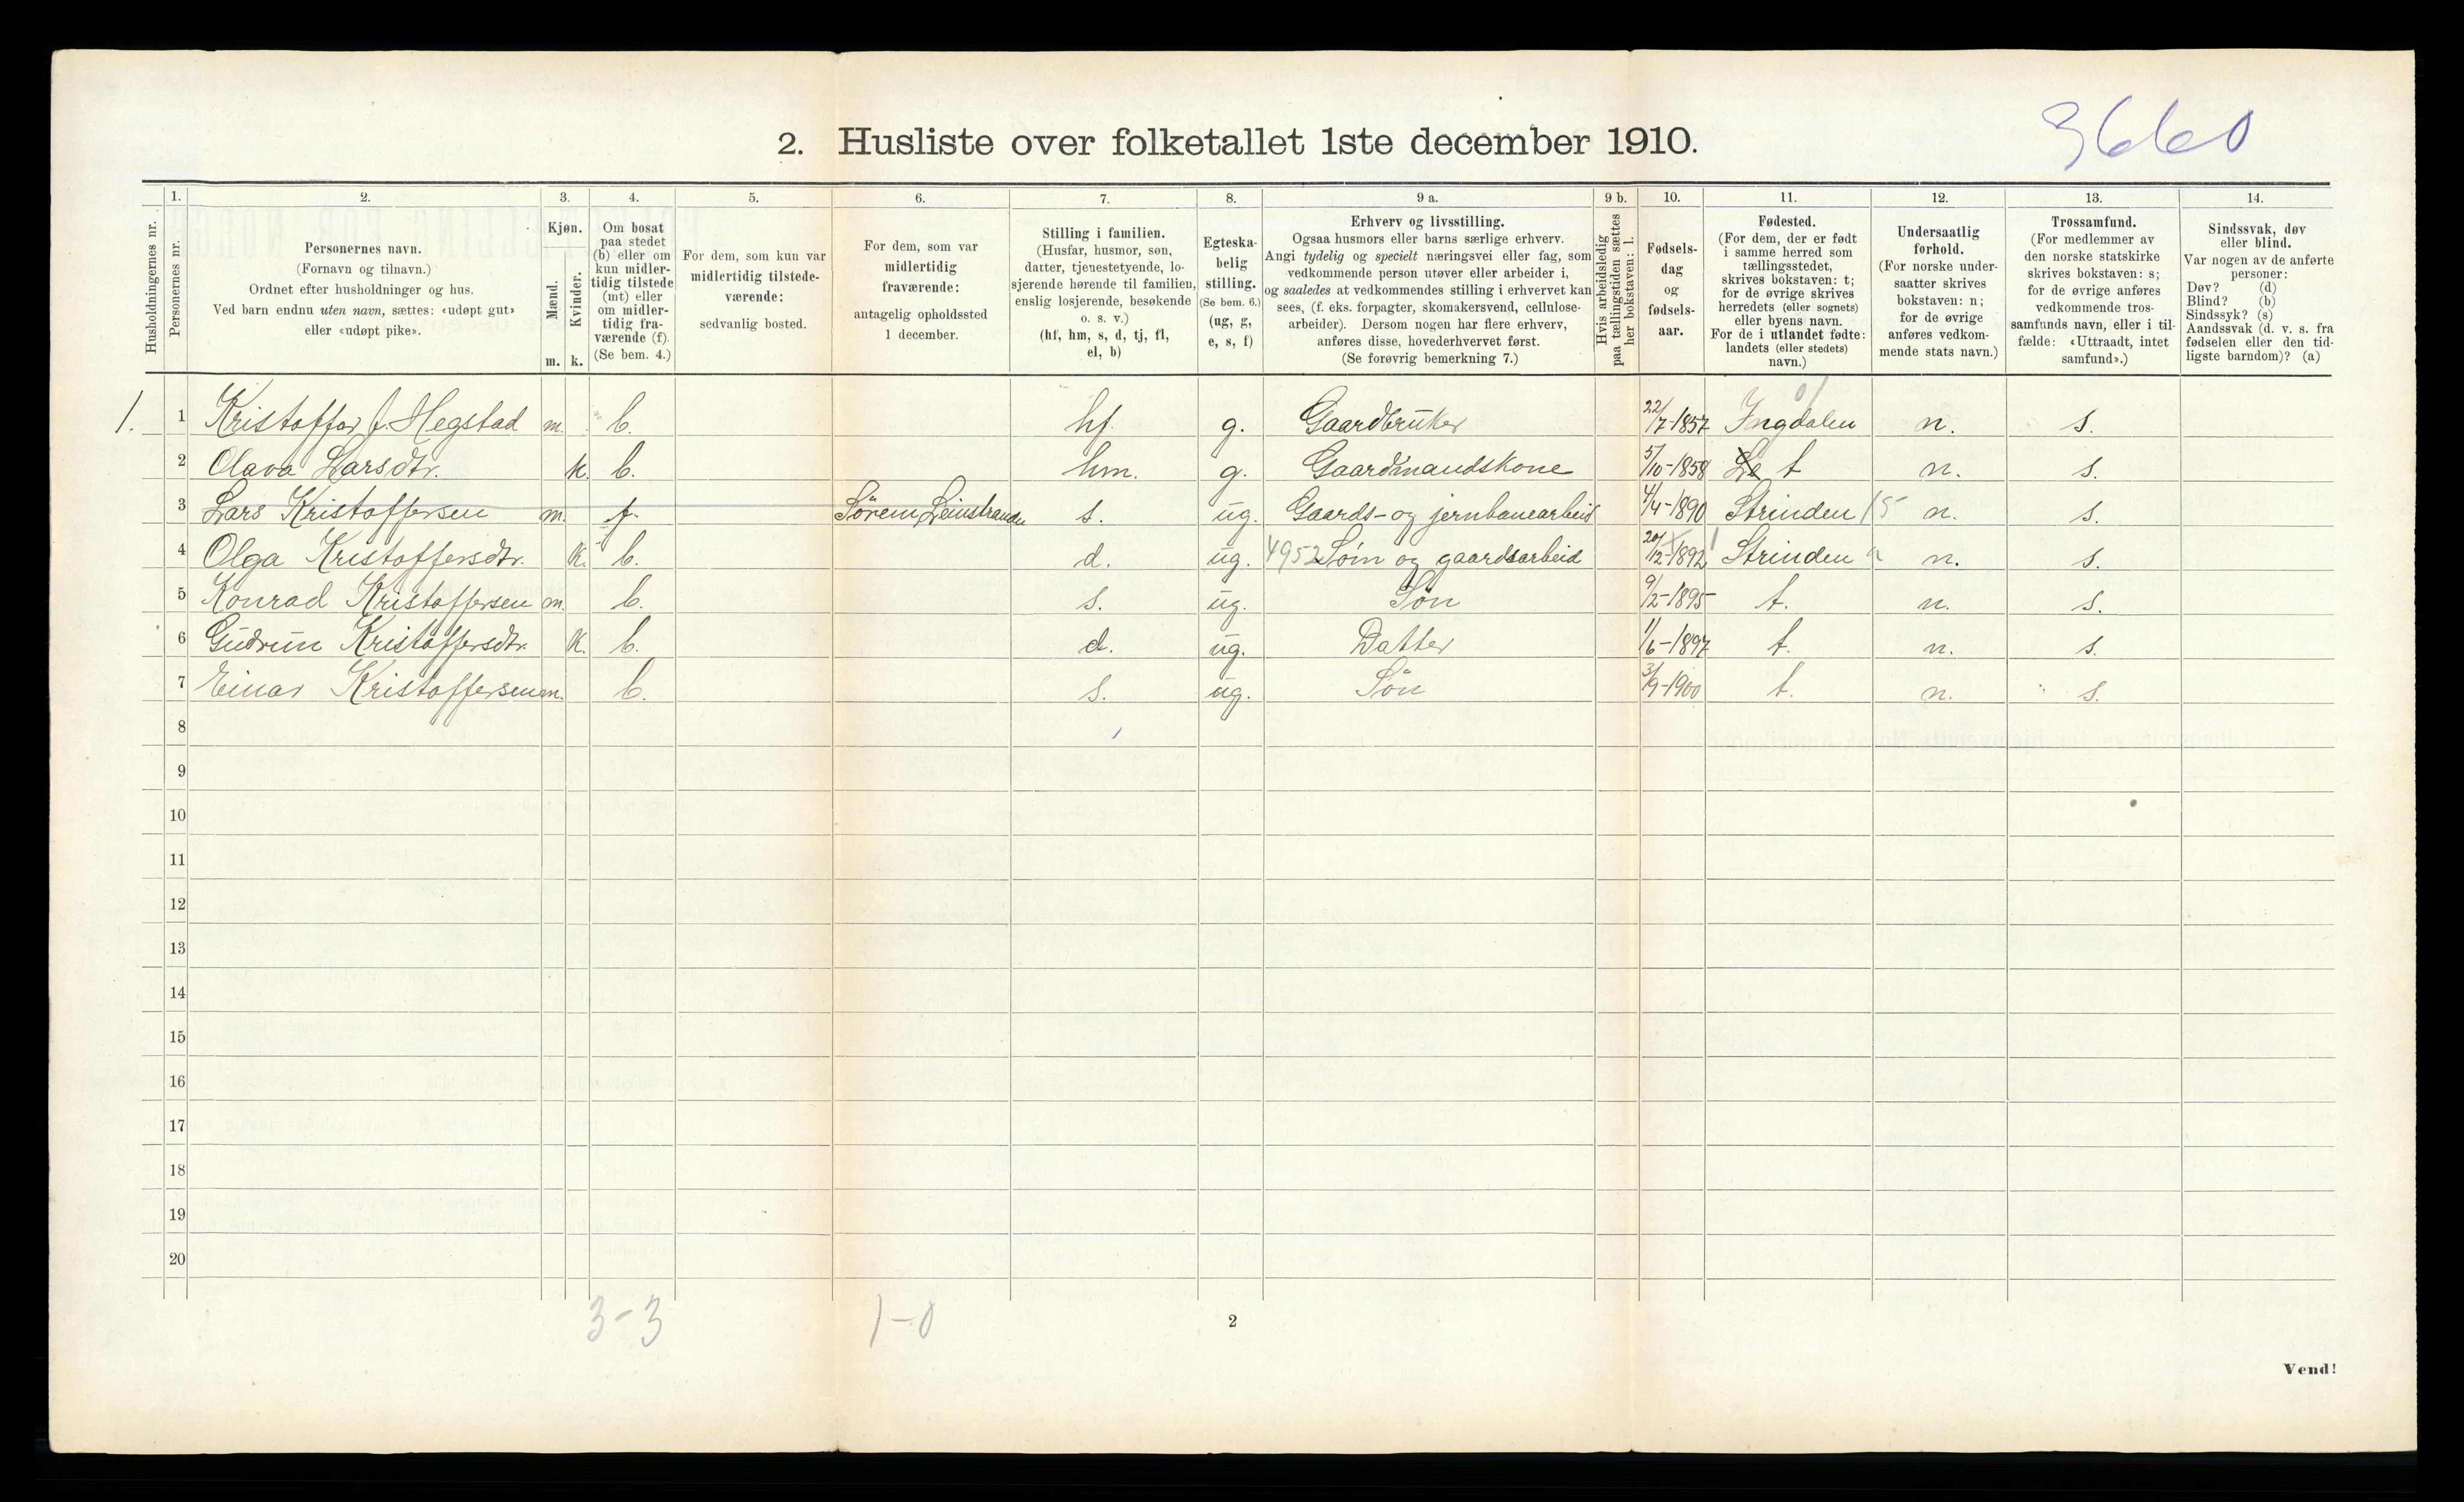 3660
2. Husliste over folketallet 1ste december 1910.
1. 2. 3. 4. 5. 6. 7. 8. 9 a. 9 b. 10. 11. 12. 13. 14.
Husholdningernes nr.
Personernes nr.
Personernes navn.
(Fornavn og tilnavn.)
Ordnet efter husholdninger og hus.
Ved barn endnu uten navn, sættes: «udøpt gut»
eller «udøpt pike».
Kjøn.
Mænd.
Kvinder.
m. k.
Om bosat
paa stedet
(b) eller om
kun midler-
tidig tilstede
(mt) eller
om midler-
tidig fra-
værende (f).
(Se bem. 4.)
For dem, som kun var
midlertidig tilstede-
værende:
sedvanlig bosted.
For dem, som var
midlertidig
fraværende:
antagelig opholdssted
1 december.
Stilling i familien.
(Husfar, husmor, søn,
datter, tjenestetyende, lo-
sjerende hørende til familien,
enslig losjerende, besøkende
o. s. v.)
(hf, hm, s, d, tj, fl,
el, b)
Egteska-
belig
stilling.
(Se bem. 6.)
(ug, g,
e, s, f)
Erhverv og livsstilling.
Ogsaa husmors eller barns særlige erhverv.
Angi tydelig og specielt næringsvei eller fag, som
vedkommende person utøver eller arbeider i,
og saaledes at vedkommendes stilling i erhvervet kan
sees, (f. eks. forpagter, skomakersvend, cellulose-
arbeider). Dersom nogen har flere erhverv,
anføres disse, hovederhvervet først.
(Se forøvrig bemerkning 7.)
Hvis arbeidsledig
paa tællingstiden sættes
her bokstaven: l.
Fødsels-
dag
og
fødsels-
aar.
Fødested.
(For dem, der er født
i samme herred som
tællingsstedet,
skrives bokstaven: t;
for de øvrige skrives
herredets (eller sognets)
eller byens navn.
For de i utlandet fødte:
landets (eller stedets)
navn.)
Undersaatlig
forhold.
(For norske under-
saatter skrives
bokstaven: n;
for de øvrige
anføres vedkom-
mende stats navn.)
Trossamfund.
(For medlemmer av
den norske statskirke
skrives bokstaven: s;
for de øvrige anføres
vedkommende tros-
samfunds navn, eller i til-
fælde: «Uttraadt, intet
samfund».)
Sindssvak, døv
eller blind.
Var nogen av de anførte
personer:
Døv? (d)
Blind? (b)
Sindssyk? (s)
Aandssvak (d. v. s. fra
fødselen eller den tid-
ligste barndom)? (a)
1. 1 Kristoffor J. Hegstad m. b. hf. g. Gaardbruker 22/7-1857 Ingdalen n. s.
2 Olava Larsdtr. k. b. hm. g. Gaardmandskone 5/10-1858 t n. s.
3 Lars Kristoffersen m. f. Sørem, Leinstranden s. ug. Gaards- og jernbanearbeid 4/4-1890 Strinden n. s.
4 Olga Kristoffersdtr. k. b. d. ug. 4952 Søm og gaardsarbeid 20/12-1892 Strinden n. s.
5 Konrad Kristoffersen m. b. s. ug. Søn 9/2-1895 t. n. s.
6 Gudrun Kristoffersdtr. k. b. d. ug. Datter 1/6-1897 t. n. s.
7 Einar Kristoffersen m. b. s. ug. Søn 3/9-1900 t. n. s.
8
9
10
11
12
13
14
15
16
17
18
19
20
3-3 1-0 2
Vend!